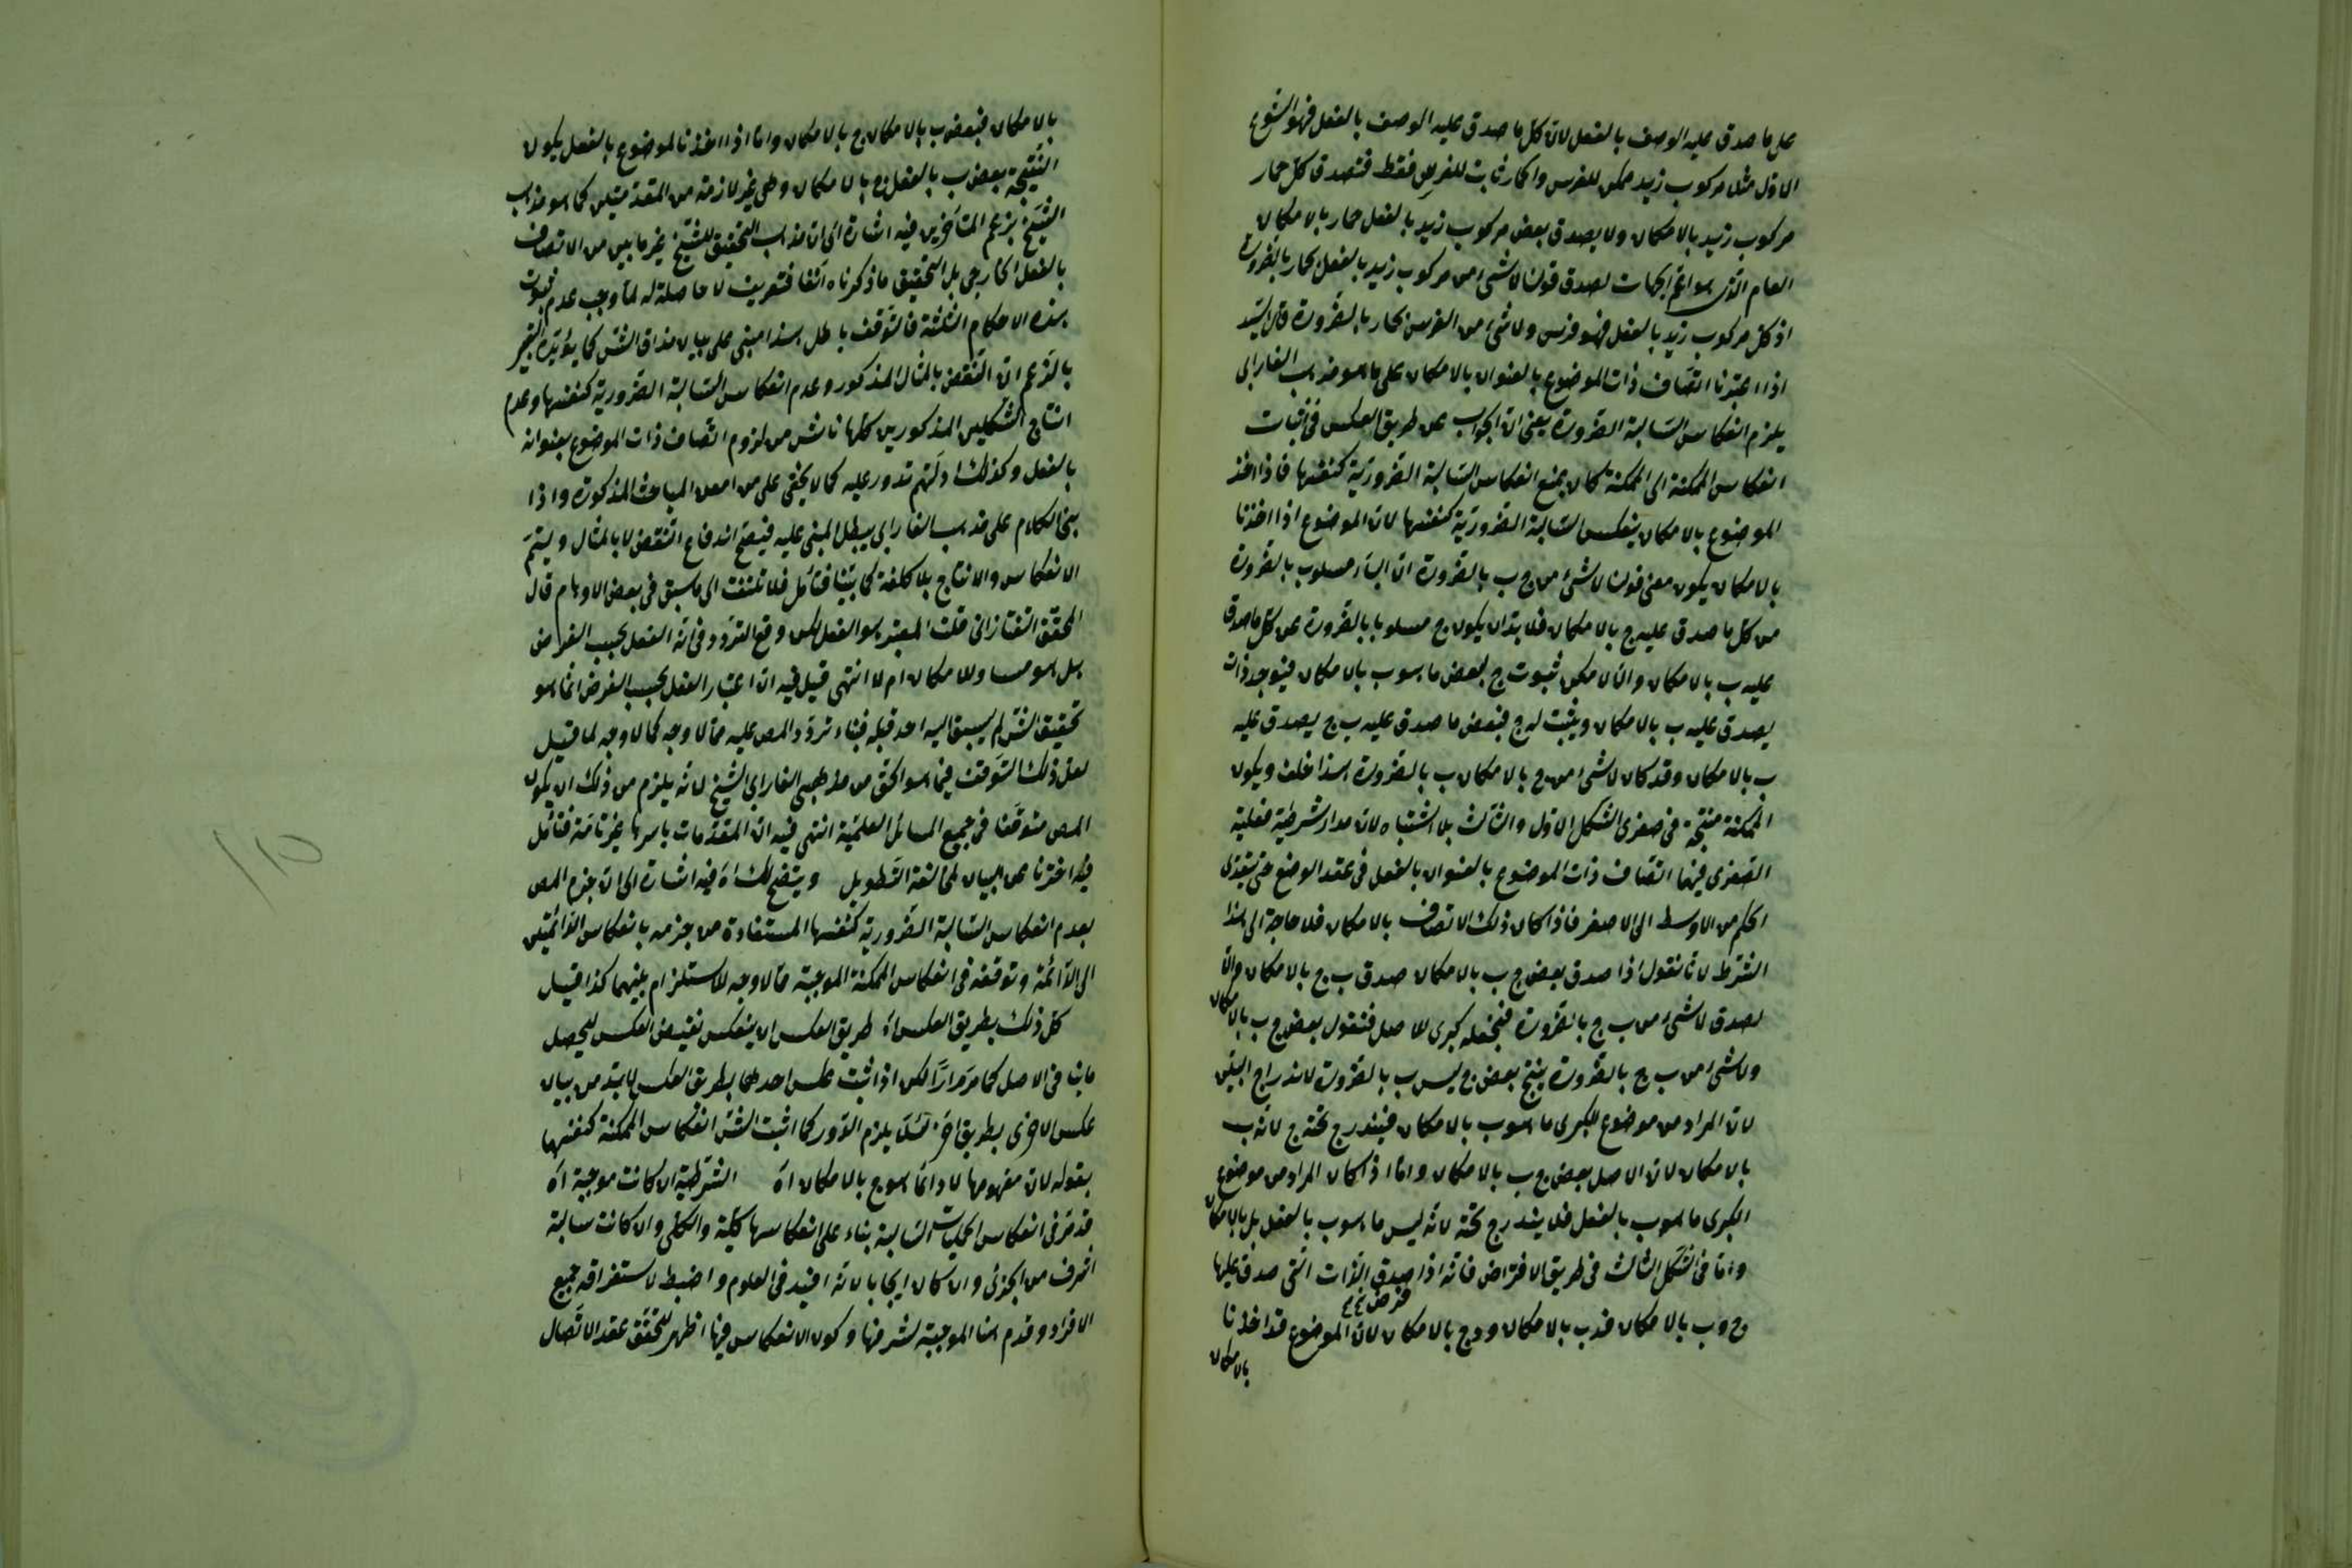 على ما صدق عليه الوصف بالفعل لان كل ما صدق عليه الوصف بالفعل فهو
الاول مثلا مركوب زيد ممكن للفرس والحمار ثابت للفرس فقط فتصدق كل حمار
مركوب زيد بالامكان ولا يصدق بعض مركوب زيد بالفعل حمار بالامكان
العام الذى هو اعم الجهات لصدق قولنا لا شىء من مركوب زيد بالفعل بحمار بالضرورة
اذ كل مركوب زيد بالفعل فهو فرس ولا شىء من الفرس بحمار بالضرورة قال السيد
اذا اعتبرنا اتصاف ذات الموضوع بالعنوان بالامكان على ما هو مذهب الفارابى
يلزم انعكاس السالبة الضرورة يعنى ان الجواب عن طريق العكس فى اثبات
انعكاس الممكنة الى الممكنة كان بمنع انعكاس السالبة الضرورية كنفسها فاذا اخذ
الموضوع بالامكان ينعكس السالبة الضرورية كنفسها لان الموضوع اذا اخذنا
بالامكان يكون معنى قولنا لا شىء من ج ب بالضرورة ان الباء مسلوب بالضرورة
من كل ما صدق عليه ج بالامكان فلا بد ان يكون ج مسلوبا بالضرورة عن كل ما صدق
عليه ب بالامكان والا لامكن ثبوت ج لبعض ما هو ب بالامكان فيوجد ذات
يصدق عليه ب بالامكان ويثبت له ج فبعض ما صدق عليه ب ج يصدق عليه
ب بالامكان وقد كان لا شىء من ج بالامكان ب بالضرورة هذا خلف ويكون
الممكنة منتجة فى صغرى الشكل الاول والثالث بلا اشتباه لان مدار شرطية فعلية
الصغرى فيهما اتصاف ذات الموضوع بالعنوان بالفعل فى عقد الوضع حتى يتعدى
الحكم من الاوسط الى الاصغر فاذا كان ذلك الاتصاف بالامكان فلا حاجة الى هذا
الشرط لانا نقول اذا صدق بعض ج ب بالامكان صدق ب ج بالامكان والا
لصدق لا شىء من ب ج بالضرورة فنجعله كبرى للاصل فنقول بعض ج ب بالامكان
ولا شىء من ب ج بالضرورة ينتج بعض ج ليس ب بالضرورة لاندراج البين
لان المراد من موضوع الكبرى ما هو ب بالامكان فيندرج تحته ج لانه ب
بالامكان لان الاصل بعض ج ب بالامكان واما اذا كان المراد من موضوع
الكبرى ما هو ب بالفعل فلا يندرج تحته لانه ليس ما هو ب بالفعل بل بالامكان
واما فى الشكل الثالث فى طريق الافتراض فانه اذا صدق الذات التى صدق عليها
فرض
ج و ب بالامكان فدب بالامكان ودج بالامكان لان الموضوع قد اخذنا
بالامكان
بالامكان فبعض ب بالامكان ج بالامكان واما اذا اخذنا لموضوع بالفعل يكون
النتيجة بعض ب بالفعل ج بالامكان وهى غير لازمة من المقدمتين كما هو مذهب
الشيخ بزعم المتأخرين فيه اشارة الى ان مذهب التحقيق للشيخ غير ما بين من الاتصاف
بالفعل الخارجى بل التحقيق ما ذكرناه آنفا فتعريف لا حاصلة له لما وجب عدم ثبوت
هذه الاحكام الثلثة فالتوقف باطل هذا مبنى على بيان مذاق الش كما يؤيده
بالزعم ان النقض بالمثال المذكور وعدم انعكاس السالبة الضرورية كنفسها وعدم
انتاج الشكلين المذكورين كلها ناش من لزوم اتصاف ذات الموضوع بعنوانه
بالفعل وكذلك ادلتهم تدور عليه كما لا يخفى على من امعن المباحث المذكورة واذا
بنى الكلام على مذهب الفارابى يبطل المبنى عليه فيصح اندفاع النقض لا بالمثال ويتم
الانعكاس والانتاج بلا كلفة كما بينا فتأمل فلا تلتفت الى ما سبق فى بعض الاوهام قال
المحقق التفتازانى قلت المعتبر هو الفعل لكن وقع التردد فى انه الفعل بحسب الفرض
بل هو مساو للامكان ام لا انتهى قيل فيه ان اعتبار الفعل بحسب الفرض انما هو
تحقيق الش لم يسبق اليه احد قبله فبناء تردد المص عليه مما لا وجه كما لا وجه لما قيل
لعل ذلك التوقف فيما هو الحق من مذهبى الفارابى الشيخ لانه يلزم من ذلك ان يكون
المص متوقفا فى جميع المسائل العلمية انتهى فيه ان المقدمات باسرها غير تامة فتأمل
فيما اخترنا من البيان لمخالفة التطويل ويتضح لك اه فيه اشارة الى ان جزم المص
بعدم انعكاس السالبة الضرورية كنفسها المستفادة من جزمه بانعكاس الدائمتين
الى الدائمة وتوقفه فى انعكاس الممكنة الموجبة مما لا وجه للاستلزام بينهما كذا قيل
كل ذلك بطريق العكس اه طريق العكس ان ينعكس نقيض العكس ليحصل
ما ينافى الاصل كما مر مرارا لكن اذا ثبت عكس احدهما بطريق العكس لا بد من بيان
عكس الاخرى بطريق اخر لئلا يلزم الدور كما اثبت الش انعكاس الممكنة كنفسها
بقوله لان مفهومها لا دائما هو ج بالامكان اه الشرطية ان كانت موجبة اه
قد مر فى انعكاس الحمليات السالبة بناء على انعكاسها كلية والكلى وان كانت سالبة
اشرف من الجزئى وان كان ايجابا لانه افيد فى العلوم واضبط لاستغراقه جميع
الافراد وقدم هنا الموجبة لشرفها وكون الانعكاس فيها اظهر لتحقق عقد الاتصال